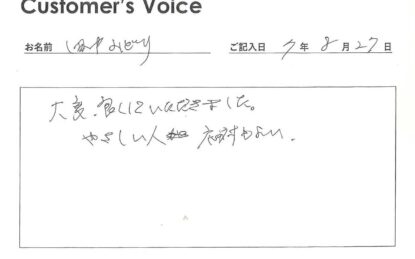 Customer's Voice
お名前 ご記入日 7年 8月27日
大変、良くしていただきました。
やさしい人 応対もよい.